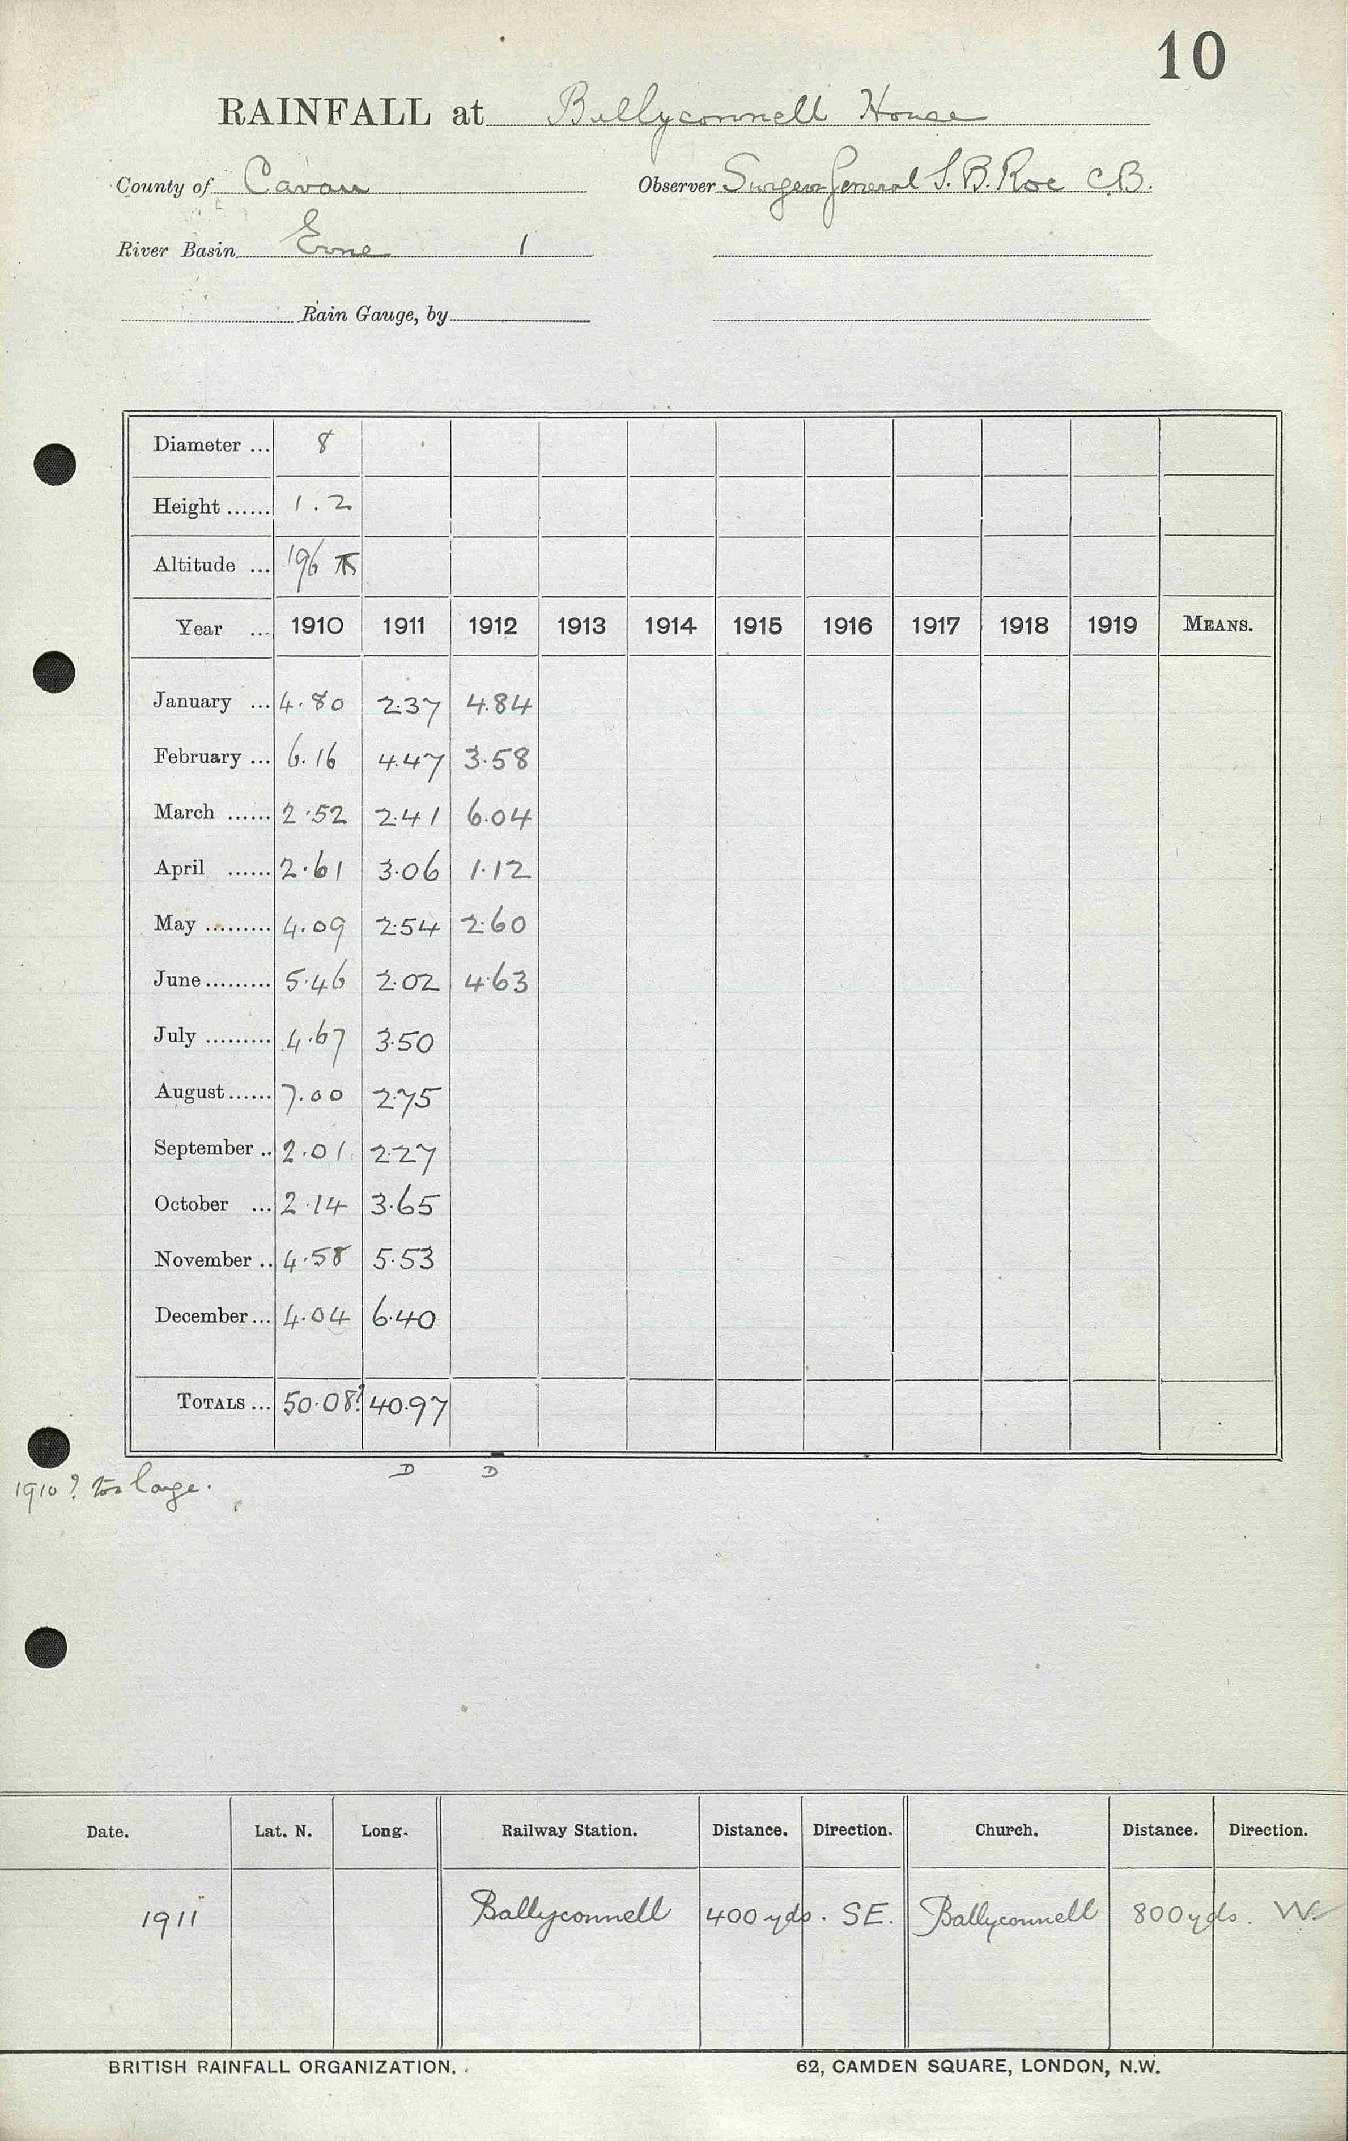 10
RAINFALL at Ballyconnell House
County of Cavan Observer Surgeon General S. B. Roe C.B.
River Basin Erne 1
Rain Gauge, by
Diameter ... 8
Height ...... 1.2
Altitude ... 196
Year ... 1910 1911 1912 1913 1914 1915 1916 1917 1918 1919 MEANS.
January ... 4.80 2.37 4.84
February ... 6.16 4.47 3.58
March ...... 2.52 2.41 6.04
April ...... 2.61 3.06 1.12
May ......... 4.09 2.54 2.60
June ......... 5.46 2.02 4.63
July ......... 4.67 3.50
August ...... 7.00 2.75
September .. 2.01 2.27
October ... 2.14 3.65
November .. 4.58 5.53
December ... 4.04 6.40
TOTALS ... 50.08? 40.97
D D
1910 ? too large.
Date. Lat. N. Long. Railway Station. Distance. Direction. Church. Distance. Direction.
1911 Ballyconnell 400 yds. SE. Ballyconnell 800 yds. W.
BRITISH RAINFALL ORGANIZATION. 62, CAMDEN SQUARE, LONDON, N.W.